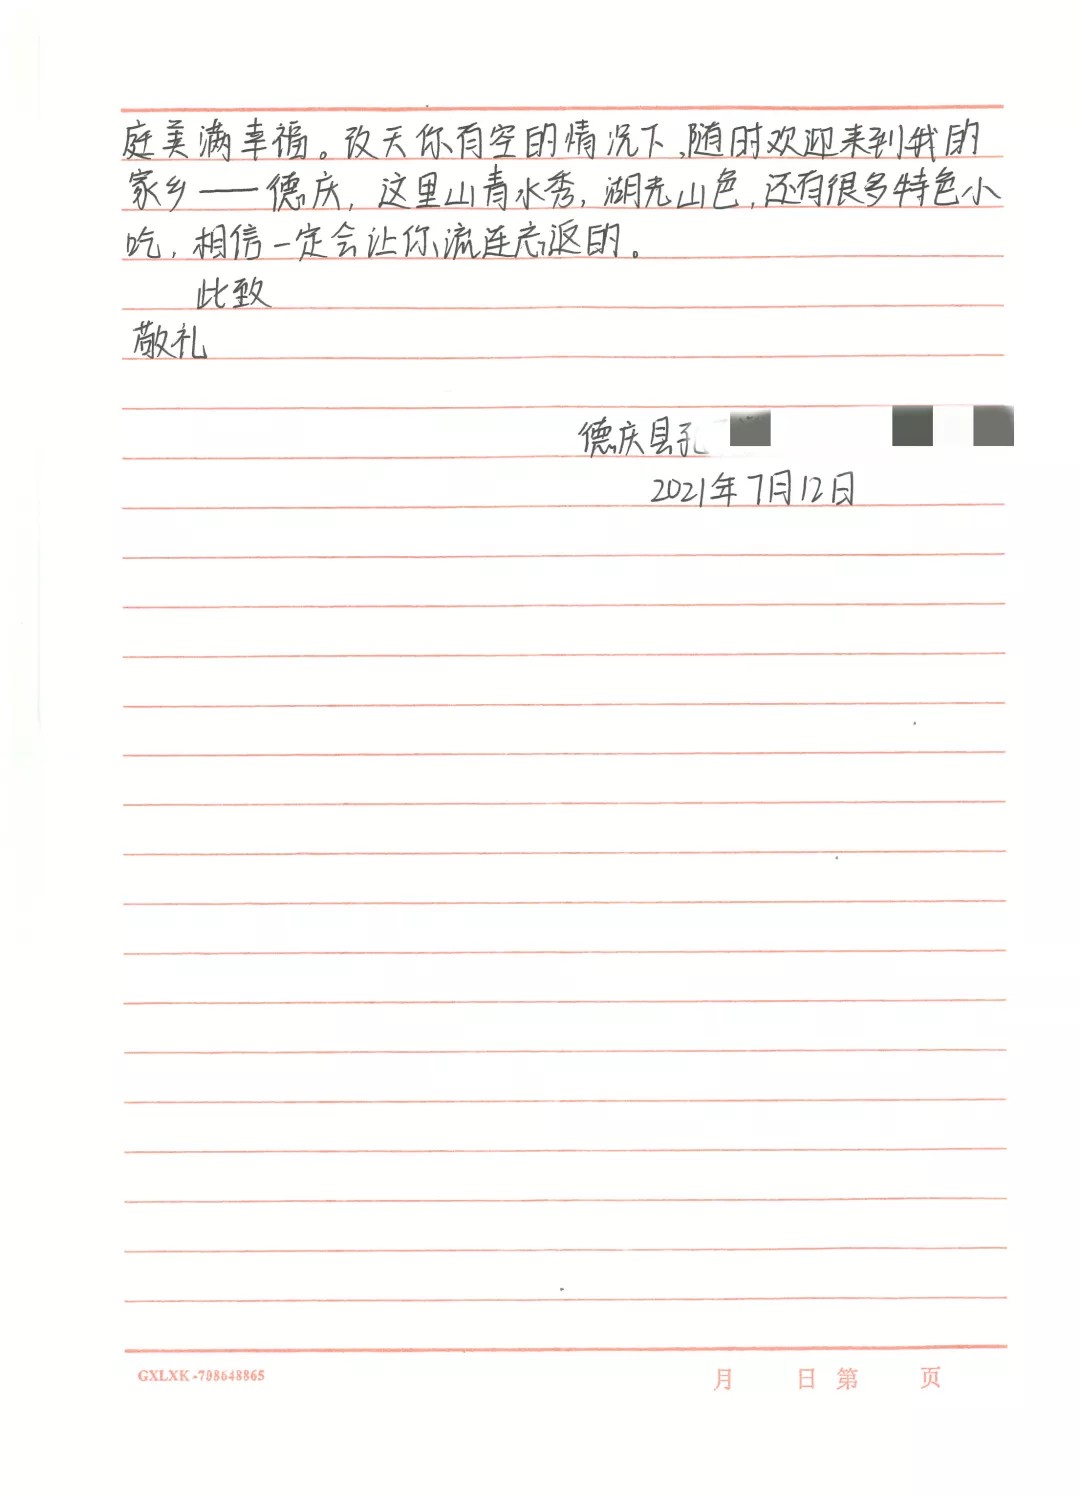 庭美满幸福。改天你有空的情况下,随时欢迎来到我的
家乡——德庆,这里山青水秀,湖光山色,还有很多特色小
吃,相信一定会让你流连忘返的。
此致
敬礼
德庆县孔
2021年7月12日
GXLXK-708648865
月 日 第 页